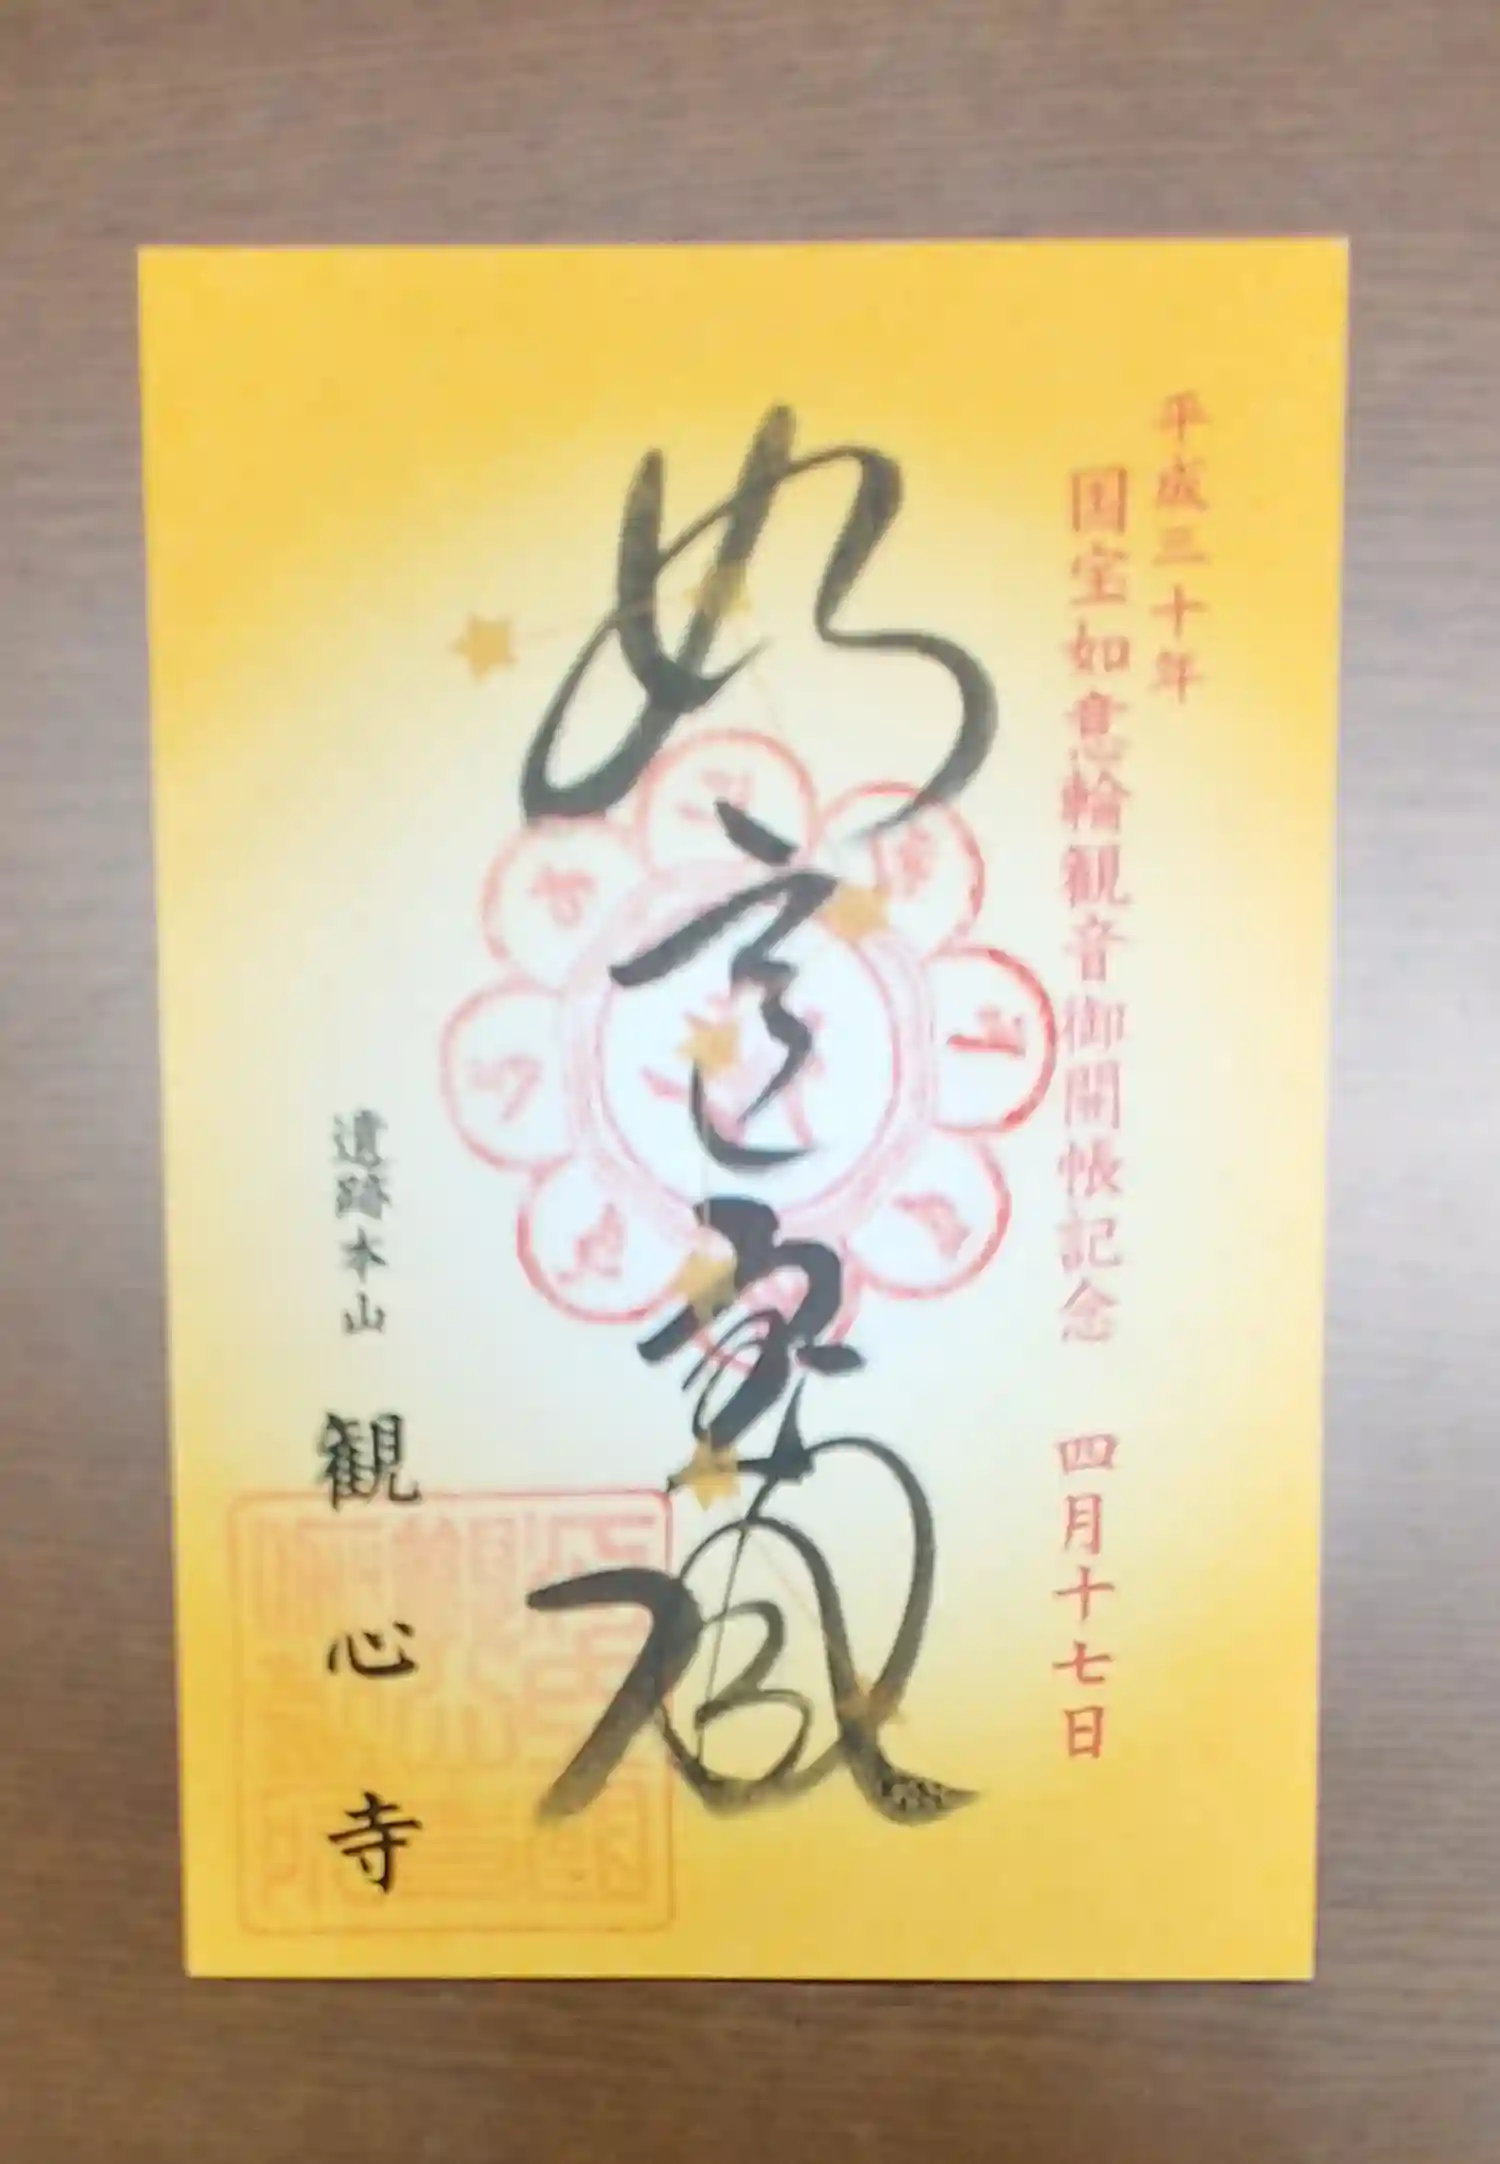 平成三十年
国宝如意輪観音御開帳記念 四月十七日
如意宝殿
遺跡本山 観心寺